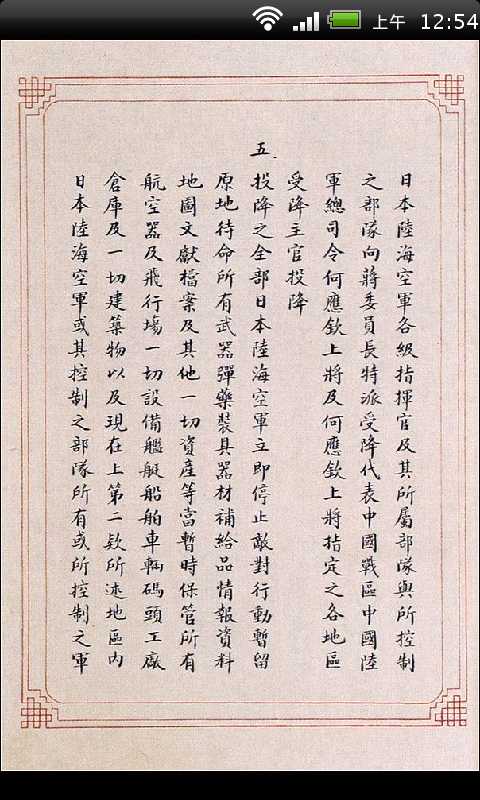 上午 12:54
日本陸海空軍各級指揮官及其所屬部隊與所控制
之部隊向蔣委員長特派受降代表中國戰區中國陸
軍總司令何應欽上將及何應欽上將指定之各地區
受降主官投降
五
投降之全部日本陸海空軍立即停止敵對行動暫留
原地待命所有武器彈藥裝具器材補給品情報資料
地圖文獻檔案及其他一切資產等當暫時保管所有
航空器及飛行場一切設備艦艇船舶車輛碼頭工廠
倉庫及一切建築物以及現在上第二欵所述地區內
日本陸海空軍或其控制之部隊所有或所控制之軍